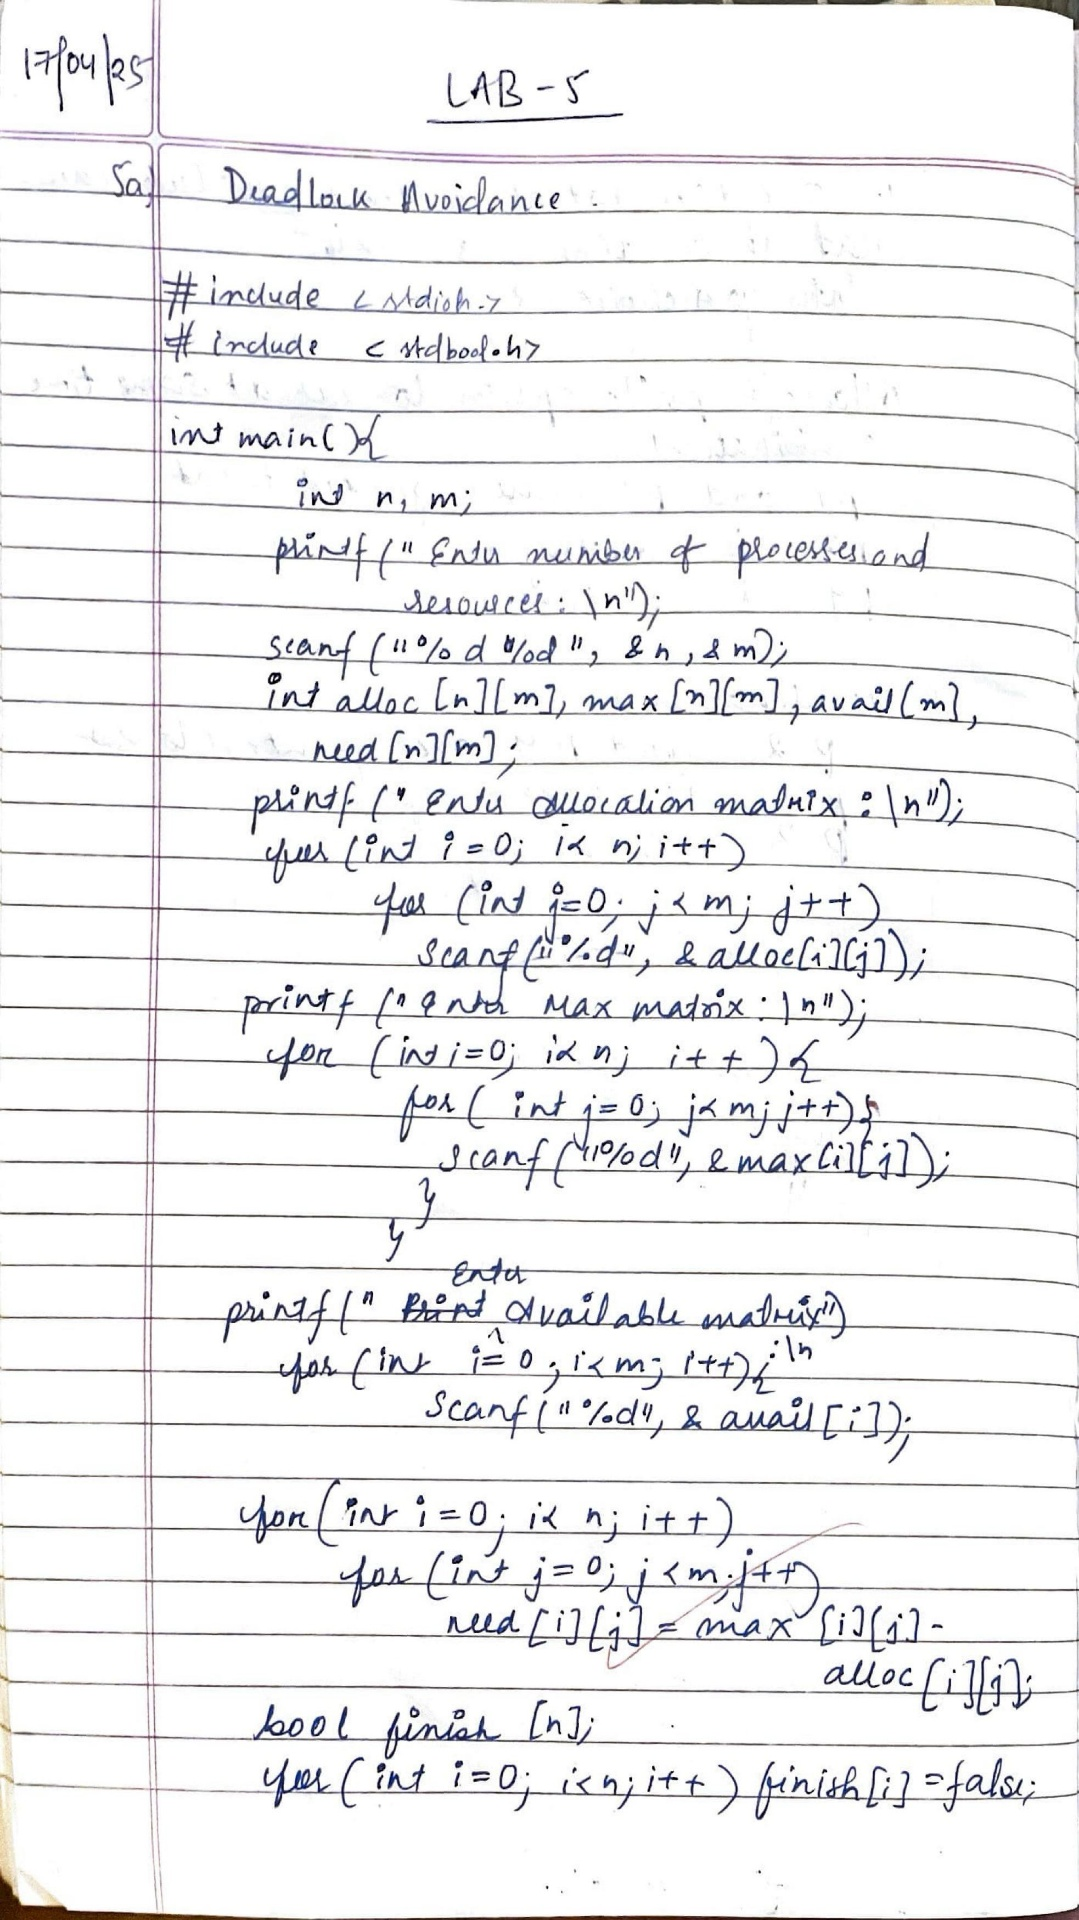 17/04/25
LAB - 5
5a) Deadlock Avoidance.
# include < stdioh.>
# include < stdbool.h>
int main(){
int n, m;
printf (" Enter number of processes and
resources : \n");
scanf ("%d %d ", &n , &m);
int alloc [n][m], max [n][m], avail[m],
need [n][m];
printf (" Enter allocation matrix : \n");
for (int i = 0; i< n; i++)
for (int j=0; j < m; j++)
scanf("%d", & alloc[i][j]);
printf (" Enter Max matrix : \n");
for (int i=0; i< n; i++ ){
for ( int j= 0; j< m; j++){
scanf ("%d", & max[i][j]);
}
}
Enter
printf (" Print Available matrix")
: \n
for (int i= 0 ; i< m; i++){
scanf ("%d", & avail [i]);
for (int i = 0; i< n; i++)
for (int j= 0; j <m; j++)
need [i][j] = max [i][j] -
alloc [i][j];
bool finish [n];
for ( int i=0; i<n; i++ ) finish[i] = false;